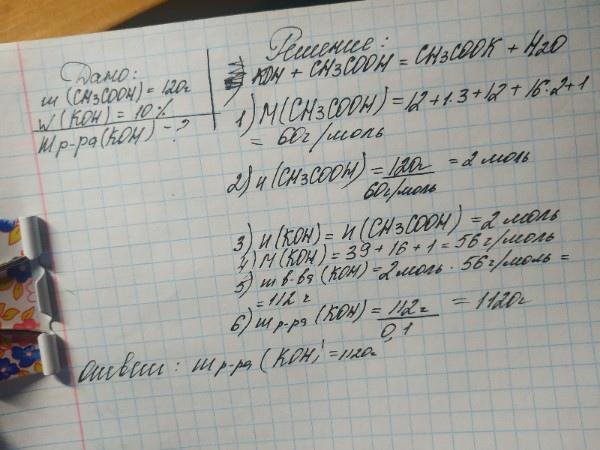 Дано:
m (CH3COOH) = 120г
W (KOH) = 10 %
m р-ра (KOH) - ?
Решение:
KOH + CH3COOH = CH3COOK + H2O
1) M(CH3COOH) = 12 + 1·3 + 12 + 16·2 + 1
= 60г/моль
2) n(CH3COOH) = 120г / 60г/моль = 2 моль
3) n(KOH) = n(CH3COOH) = 2 моль
4) M(KOH) = 39 + 16 + 1 = 56 г/моль
5) m в-ва (KOH) = 2 моль · 56 г/моль =
= 112 г
6) m р-ра (KOH) = 112г / 0,1 = 1120г
Ответ: m р-ра (KOH) = 1120г